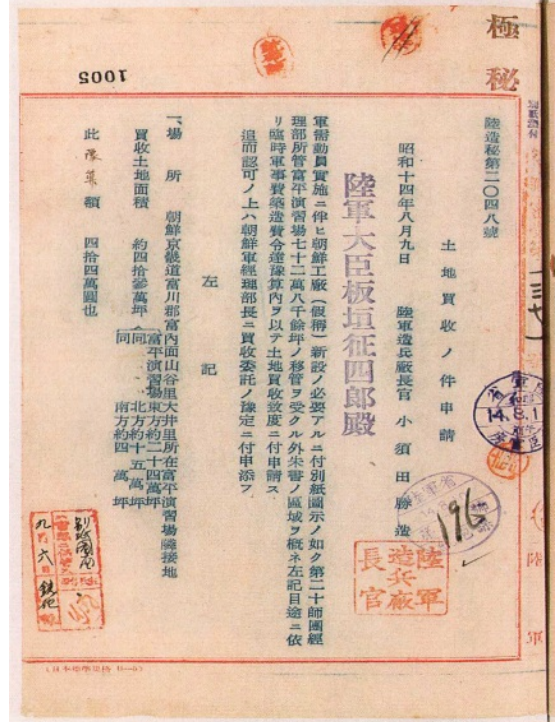 極秘
陸造秘第二〇四八號
土地買收ノ件申請
昭和十四年八月九日 陸軍造兵廠長官 小須田勝造
陸軍大臣板垣征四郎殿
軍需動員實施ニ件ヒ朝鮮工廠(假稱)新設ノ必要アルニ付別紙圖示ノ如ク第二十師團經
理部所管富平演習場七十二萬八千餘坪ノ移管ヲ受クル外朱書ノ區域ヲ概ネ左記目途ニ依
リ臨時軍事費築造費令達豫算内ヲ以テ土地買收致度ニ付申請ス
追而認可ノ上ハ朝鮮軍經理部長ニ買收委託ノ豫定ニ付申添フ
左記
一、場所 朝鮮京畿道富川郡富内面山谷里大井里所在富平演習場隣接地
買收土地面積 約四拾參萬坪
富平演習場東方約二十四萬坪
同 北方約十五萬坪
同 南方約四萬坪
此豫算額 四拾四萬圓也
1005
196
陸軍
造兵廠
長官
14.8.1
九月六日
陸軍